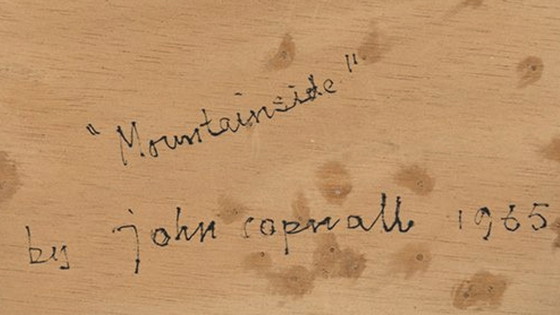 "Mountainside"
by john copnall 1965